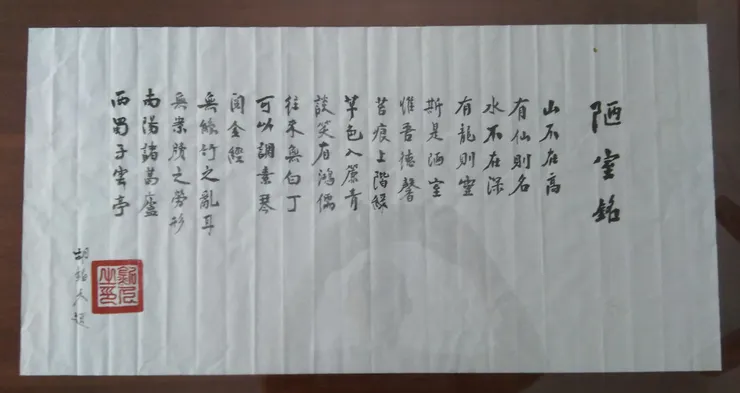 陋室銘
山不在高
有仙則名
水不在深
有龍則靈
斯是陋室
惟吾德馨
苔痕上階綠
草色入簾青
談笑有鴻儒
往來無白丁
可以調素琴
閱金經
無絲竹之亂耳
無案牘之勞形
南陽諸葛廬
西蜀子雲亭